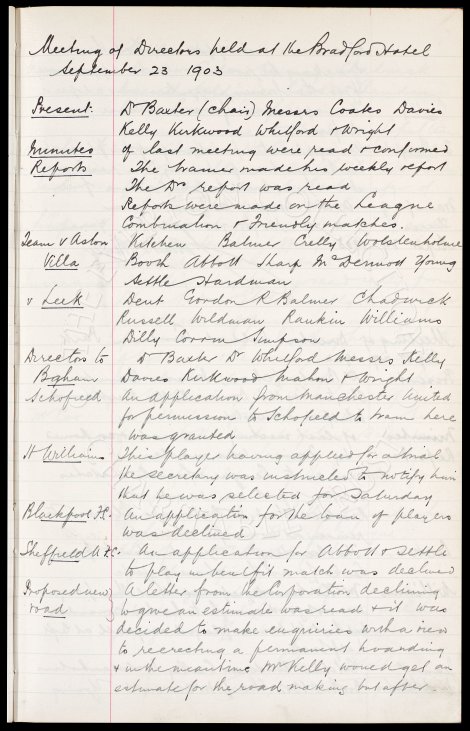 Meeting of Directors held at the Bradford Hotel
September 23 1903
Present: Dr Baxter (chair) Messrs Coates Davies
Kelly Kirkwood Whitford & Wright
Minutes of last meeting were read & confirmed
Reports The trainer made his weekly report
The Drs report was read
Reports were made on the League
Combination & Friendly matches.
Team v Aston Kitchen Balmer Crelly Wolstenholme
Villa Booth Abbott Sharp McDermott Young
Settle Hardman
v Leek Dent Gordon R Balmer Chadwick
Russell Wildman Rankin Williams
Dilly Corrin Simpson
Directors to Dr Baxter Dr Whitford Messrs Kelly
Bgham Davies Kirkwood Mahon & Wright
Schofield An application from Manchester United
for permission to Schofield to train here
was granted
H Williams This player having applied for a trial
the secretary was instructed to notify him
that he was selected for Saturday
Blackpool FC. An application for the loan of players
was declined
Sheffield U FC. An application for Abbott & Settle
to play in benefit match was declined
Proposed new A letter from the Corporation declining
road to give an estimate was read & it was
decided to make enquiries with a view
to recrecting a permanent hoarding
& in the meantime Mr Kelly would get an
estimate for the road making but after